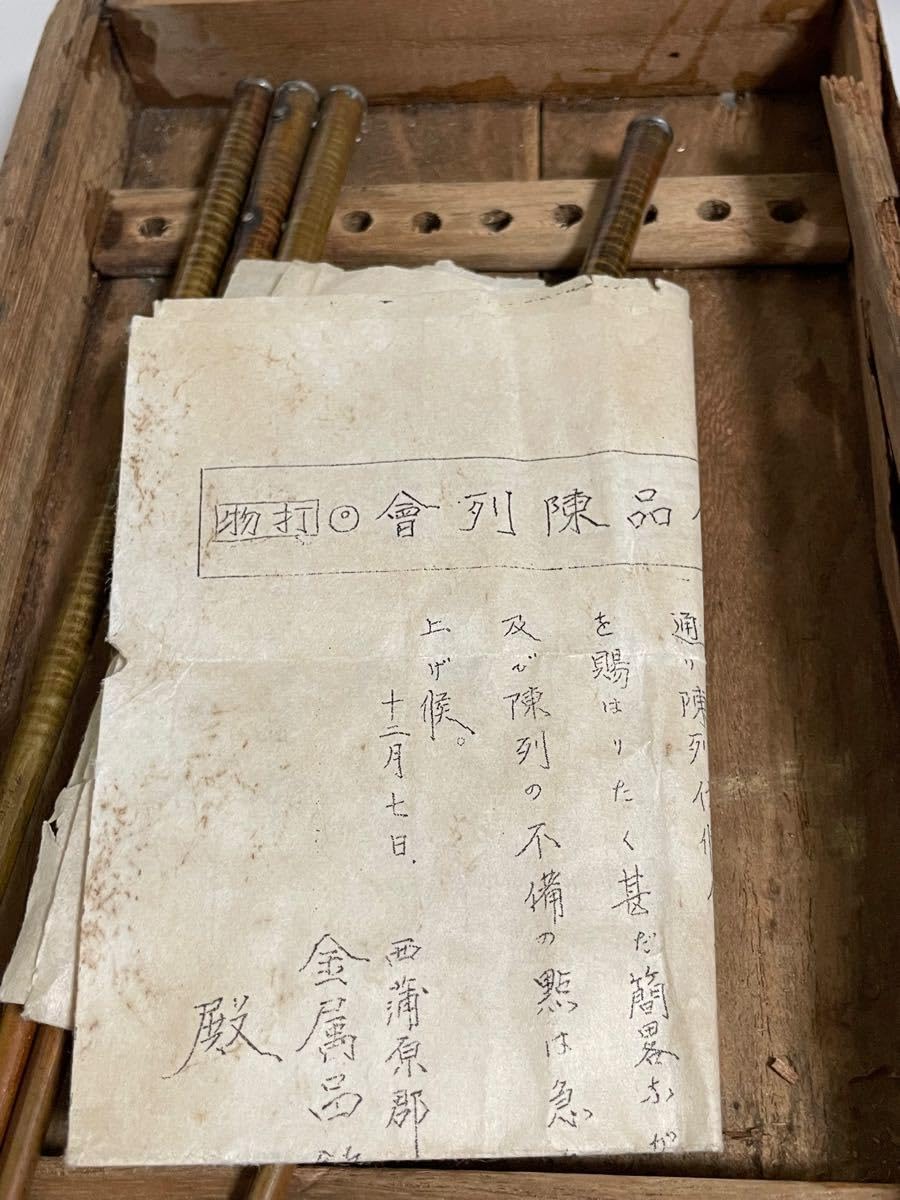 品陳列會◎打物
通り陳列
を賜はりたく甚だ簡畧なが
及び陳列の不備の點は急
上げ候。
十二月七日
西蒲原郡
金属品
殿